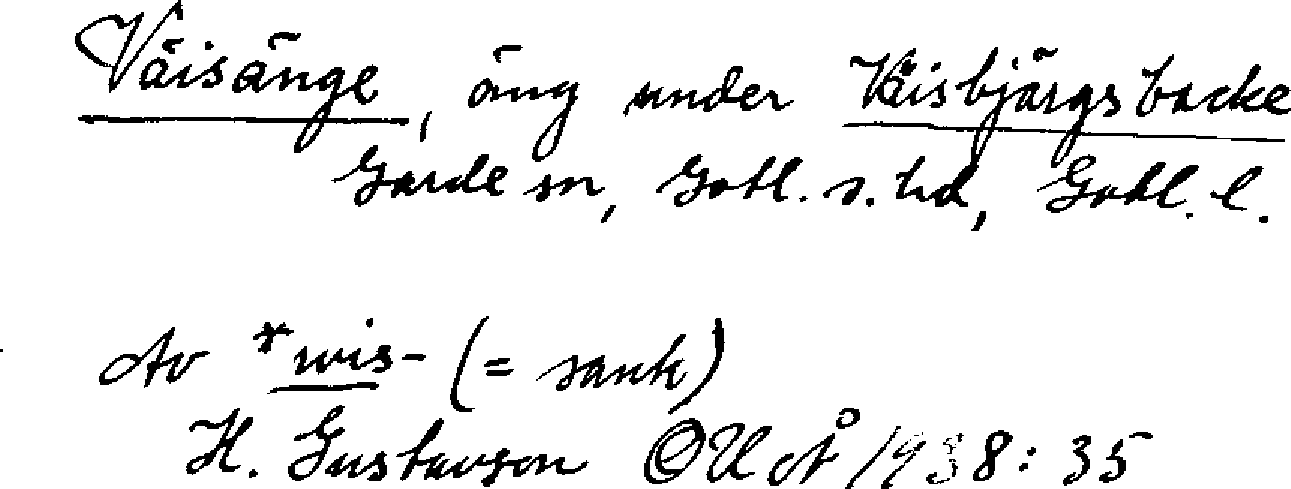 Väisänge, äng under Väisbjärgsbacke
Garde sn, Gotl. s. hd, Gotl. l.
Av *wis- (= sank)
H. Gustavson OUÅ 1938: 35